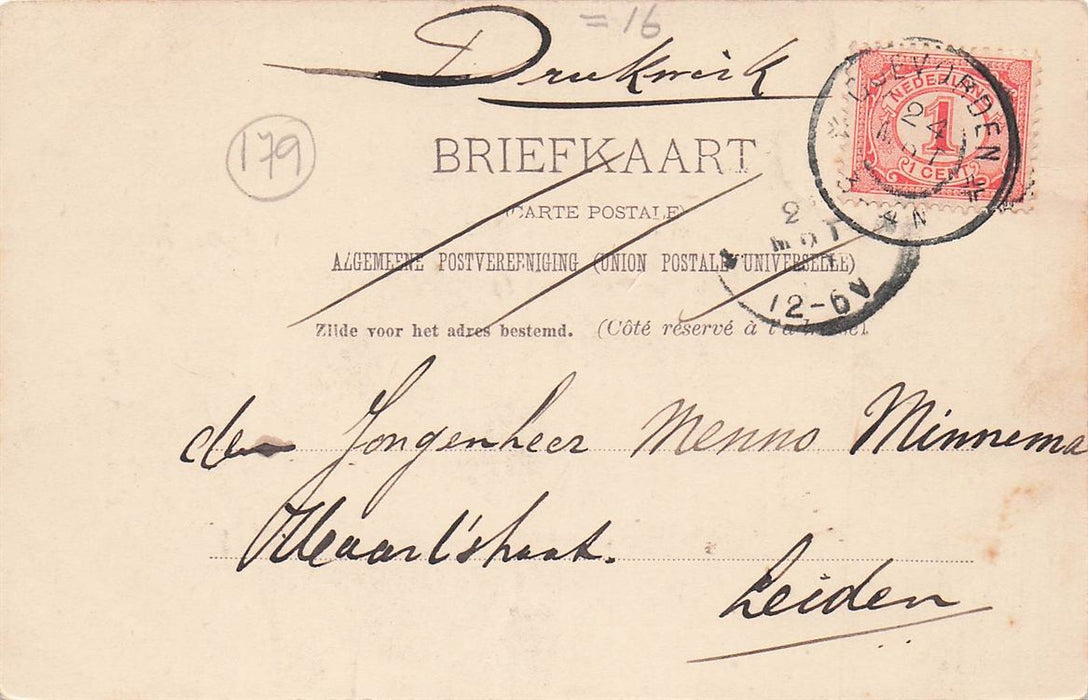 = 16
Drukwerk
179
BRIEFKAART
(CARTE POSTALE)
ALGEMEENE POSTVEREENIGING (UNION POSTALE UNIVERSELLE)
Zijde voor het adres bestemd. (Côté réservé à
NEDERLAND
1
1 CENT
COEVORDEN
24
3 4 N
2
12-6V
den Jongenheer Menno Minnema
Leiden